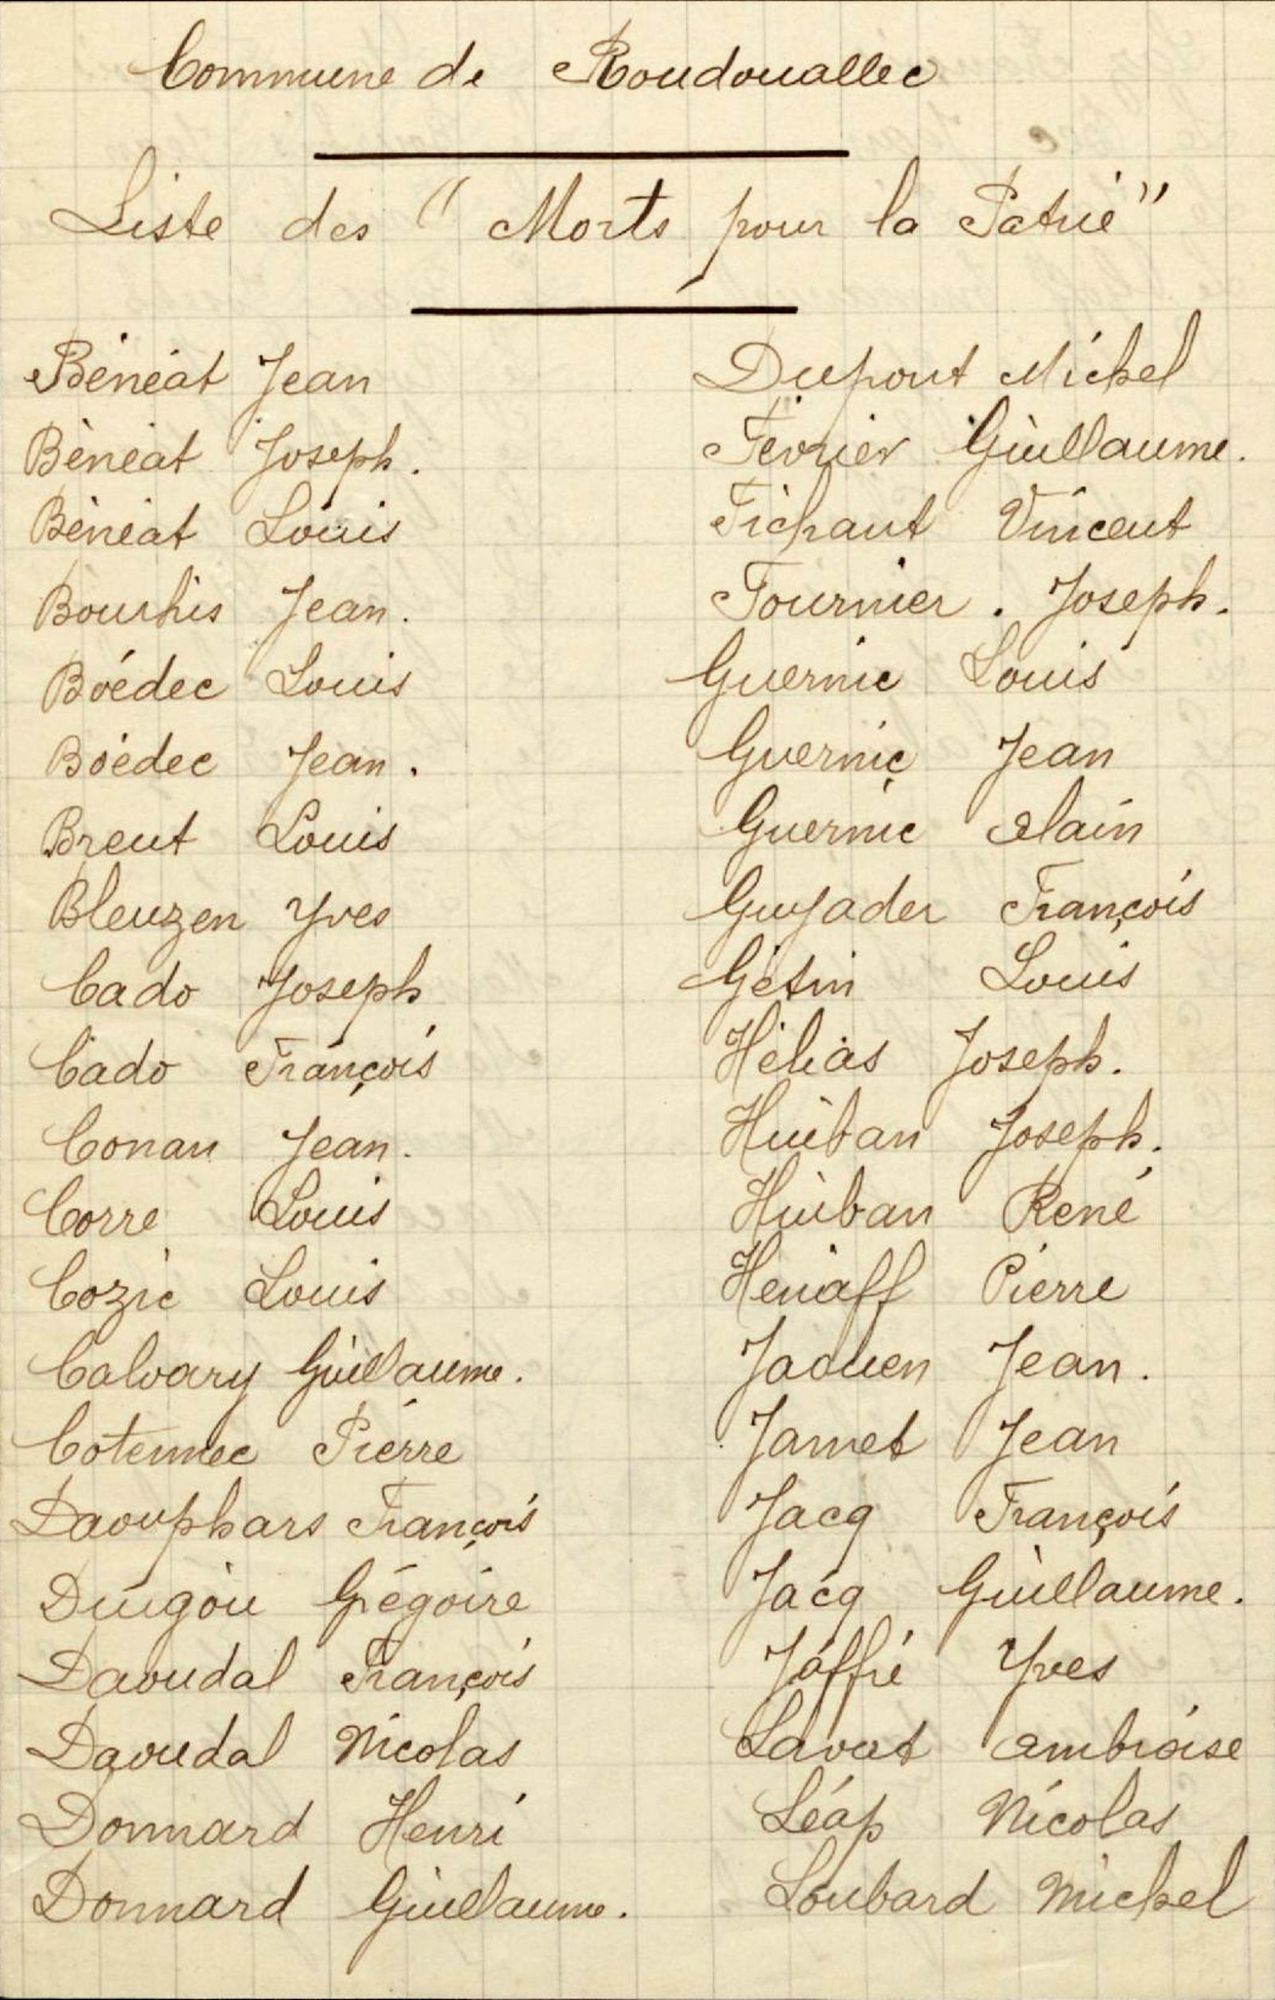 Commune de Roudouallec
Liste des "Morts pour la Patrie"
Bénéat Jean
Bénéat Joseph.
Bénéat Louis
Bourhis Jean.
Boédec Louis
Boédec Jean.
Breut Louis
Bleuzen Yves
Cado Joseph
Cado François
Conan Jean.
Corre Louis
Cozic Louis
Calvary Guillaume.
Cotennec Pierre
Daouphars François
Duigou Grégoire
Daoudal François
Daoudal Nicolas
Donnard Henri
Donnard Guillaume.
Dupont Michel
Février Guillaume.
Fichaut Vincent
Fournier. Joseph.
Guernic Louis
Guernic Jean
Guernic Alain
Guyader François
Gétin Louis
Hélias Joseph.
Huiban Joseph.
Huiban René
Henaff Pierre
Jaouen Jean.
Jamet Jean
Jacq François
Jacq Guillaume.
Joffré Yves
Lavat Ambroise
Léap Nicolas
Loubard Michel